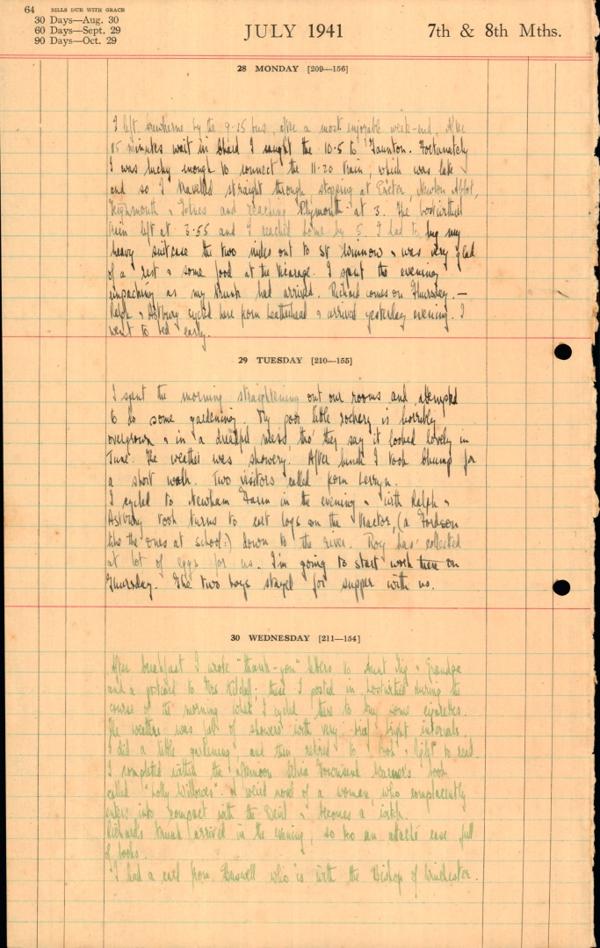 64 BILLS DUE WITH GRACE
30 Days—Aug. 30
60 Days—Sept. 29
90 Days—Oct. 29
JULY 1941
7th & 8th Mths.
28 MONDAY [209—156]
I left by the 9-15 bus, after a most enjoyable week-end. After
15 minutes wait in Chard I caught the 10-5 to Taunton. Fortunately
I was lucky enough to connect the 11-20 train, which was late
and so I travelled straight through stopping at Exeter, Newton Abbot,
Teignmouth & Totnes and reaching Plymouth at 3. The Lostwithiel
train left at 3-55 and I reached home by 5. I had to lug my
heavy suitcase the two miles out to St Winnow & was very glad
of a rest & some food at the Vicarage. I spent the evening
unpacking as my trunk had arrived. Richard comes on Thursday. —
Ralph & Astbury cycled here from Leatherhead & arrived yesterday evening. I
went to bed early.
29 TUESDAY [210—155]
I spent the morning straightening out our rooms and attempted
to do some gardening. My poor little rockery is horribly
overgrown & in a dreadful mess, tho' they say it looked lovely in
June. The weather was showery. After lunch I took Chump for
a short walk. Two visitors called from Lerryn.
I cycled to Newham Farm in the evening & with Ralph &
Astbury took turns to cart logs on the tractor, (a Fordson
like the ones at school:) down to the river. Roy has collected
a lot of eggs for us. I'm going to start work there on
Thursday. The two boys stayed for supper with us.
30 WEDNESDAY [211—154]
After breakfast I wrote "thank-you" letters to Aunt & Grandpa
and a postcard to Mrs these I posted in Lostwithiel during the
course of the morning when I cycled there to buy some cigarettes.
The weather was full of showers with very bright intervals.
I did a little gardening and then retired to to read.
I completed within the afternoon Sylvia Townsend Warner's book
called "Lolly Willowes" A weird novel of a woman, who complacently
enters into compact with the Devil & becomes a witch.
Richard's trunk arrived in the evening, so too an attaché case full
of books.
I had a card from who is with the Bishop of Winchester.